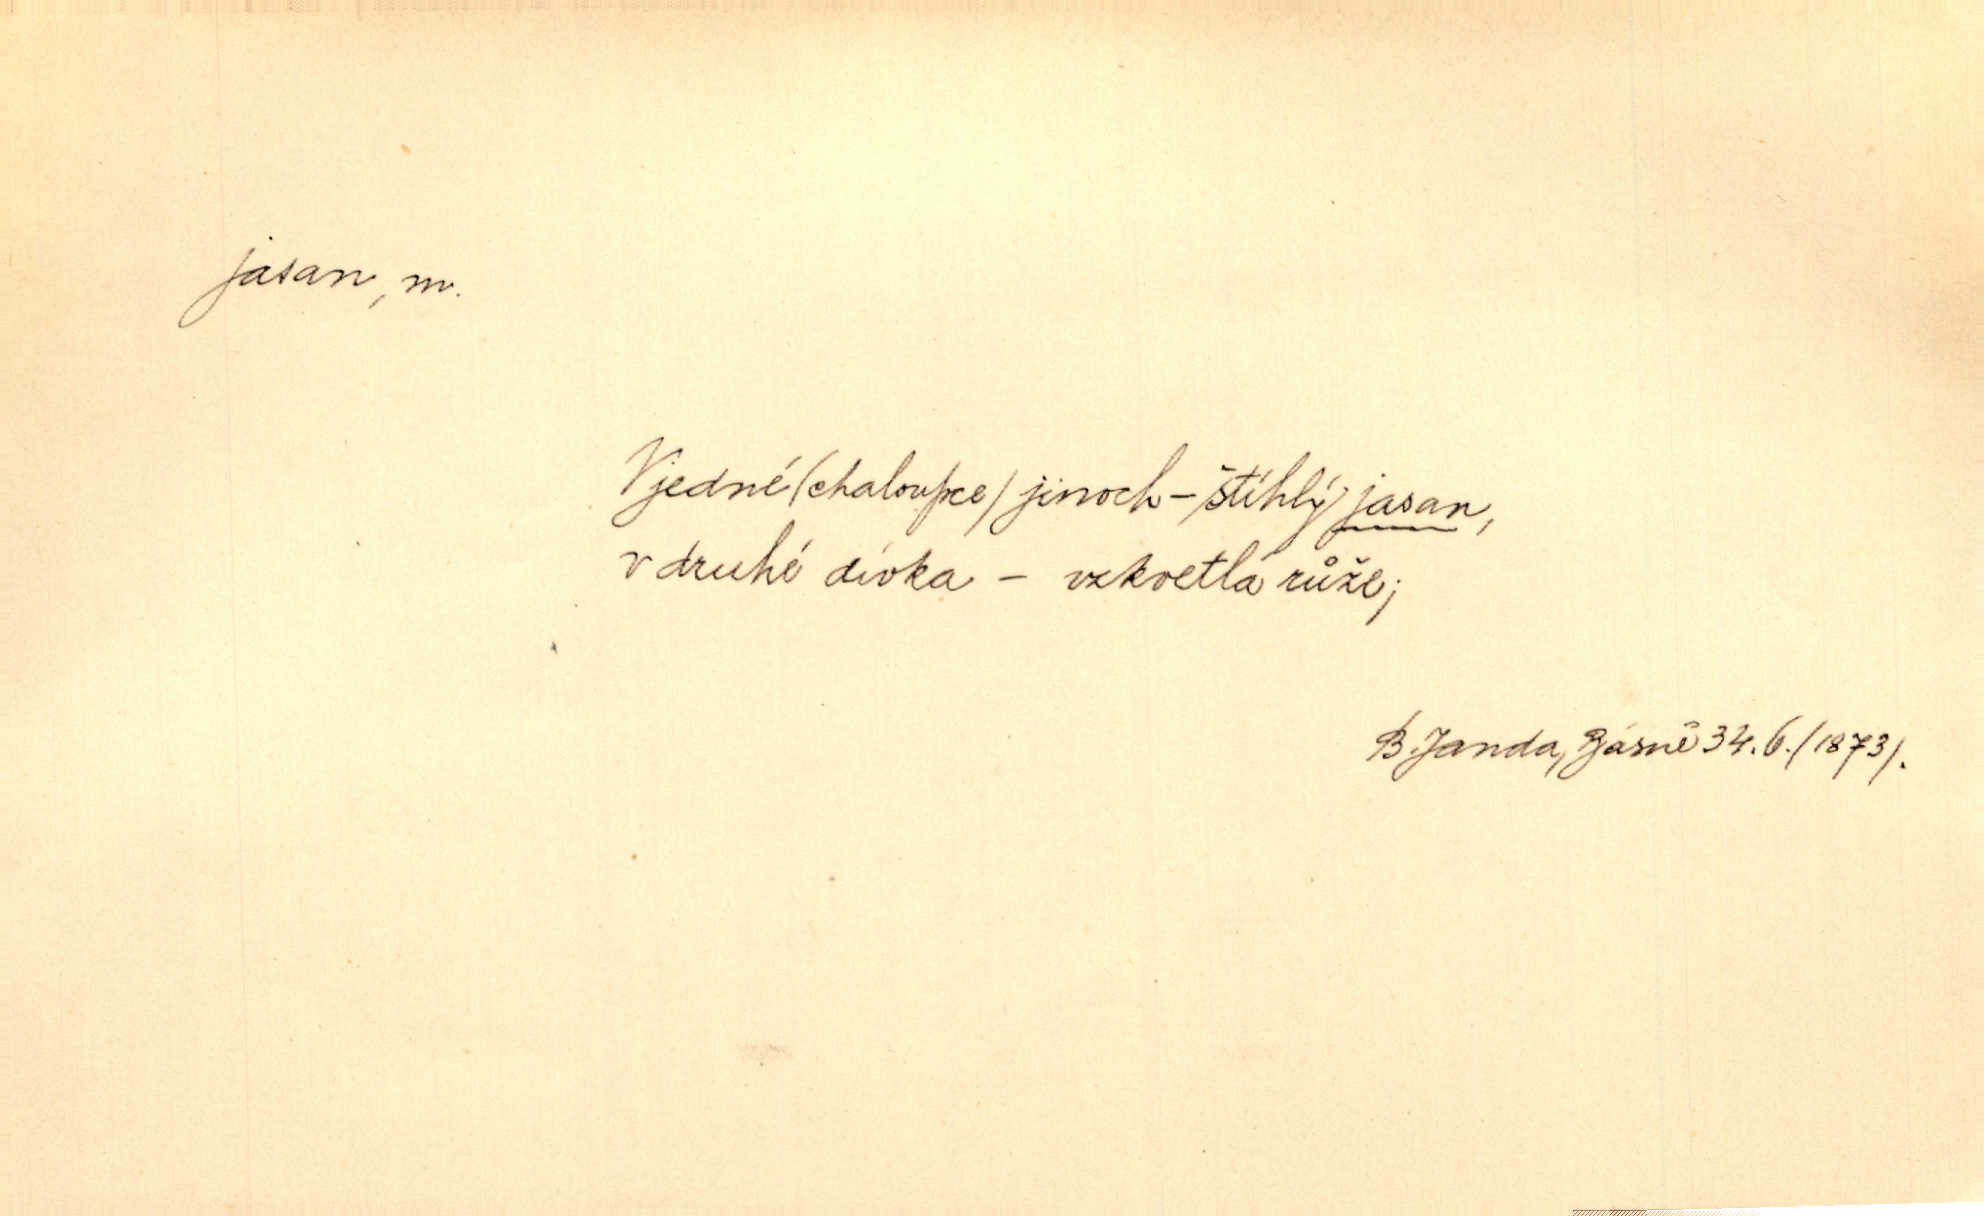 jasan, m.
V jedné (chaloupce) jinoch – štíhlý jasan,
v druhé dívka – vzkvetlá růže;
B. Janda, Básně 34.6. (1873).